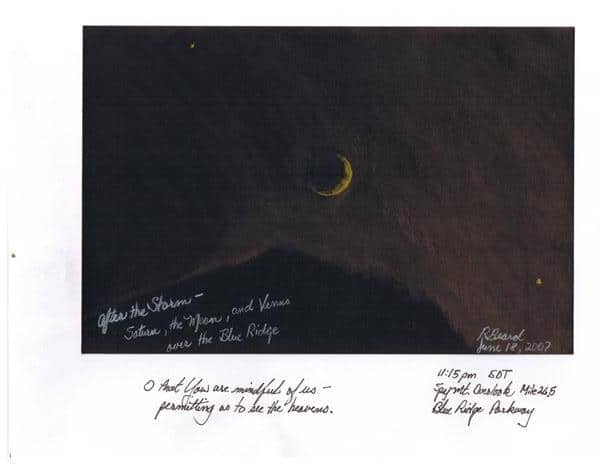 After the Storm -
Saturn, the Moon, and Venus
over the Blue Ridge
R Beard
June 18, 2007
O that You are mindful of us -
permitting us to see the heavens.
11:15 pm EDT
Overlook Mile 265
Blue Ridge Parkway